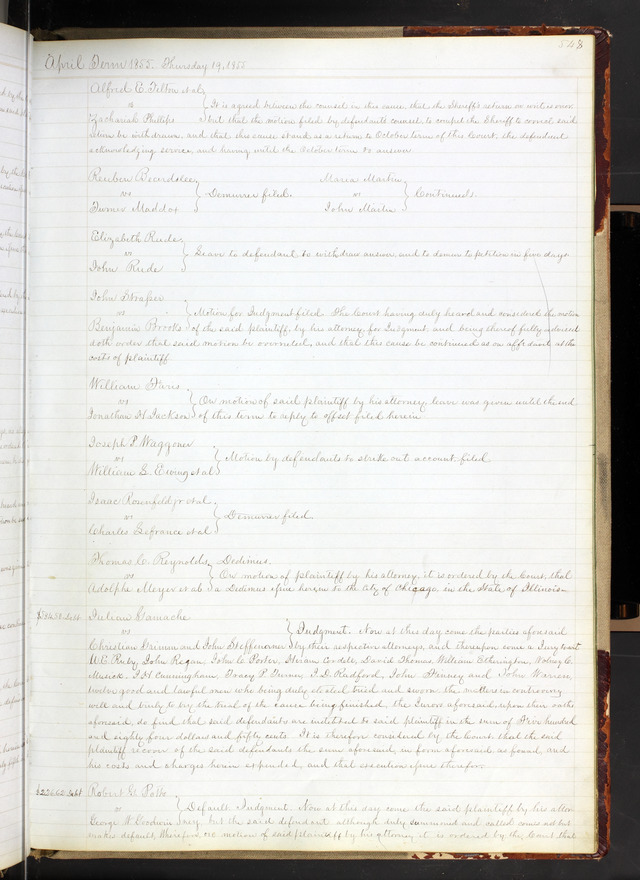 548
April Term 1855. Thursday 19, 1855
Alfred C. Tilton et al
vs It is agreed between the counsel in this cause, that the Sheriff's return on writ is
Zachariah Phillips but that the motion filed by defendants counsel to compel the Sheriff to correct said
return be withdrawn, and that this cause stand as a return to October term of this Court, the defendant
acknowledging service, and having until the October term to answer
Reuben Beardslee Maria Martin
vs Demurrer filed. vs Continued.
Turner Maddox John Martin
Elizabeth Rude
vs Leave to defendant to withdraw answer and to demur to petition in five days
John Rude
John Strasser
vs Motion for Judgment filed. The Court having duly heard and considered the motion
Benjamin Brooks of the said plaintiff, by his attorney, for Judgment, and being thereof fully advised
doth order that said motion be overruled, and that this cause be continued as on affidavit at the
costs of plaintiff.
William Faris
vs On motion of said plaintiff by his attorney leave was given until the end
Jonathan H Jackson of this term to reply to offset filed herein
Joseph P Waggoner
vs Motion by defendants to strike out account filed
William L. Ewing et al
Isaac Rosenfeld jr et al
vs Demurrer filed.
Charles Lefrance et al
Thomas C. Reynolds Dedimus.
vs On motion of plaintiff by his attorney, it is ordered by the Court, that
Adolphe Meyer et al a Dedimus issue herein to the City of Chicago, in the State of Illinois
Julian Gamache
vs Judgment. Now at this day come the parties aforesaid
Christian and John by their respective attorneys, and thereupon come a Jury to wit
A. C. Ruby, John Regan, John C. Porter, Hiram Cordell, David Thomas, William Etherington, Rodney C.
Musick, J H Cunningham, T. D. Radford, John and John Warren,
twelve good and lawful men who being duly elected tried and sworn the matters in controversy
well and truly to try the trial of the cause being finished, the Jurors aforesaid upon their oaths
aforesaid, do find that said defendants are indebted to said plaintiff in the sum of Five hundred
and eighty four dollars and fifty cents. It is therefore considered by the Court that the said
plaintiff recover of the said defendants the sum aforesaid, in form aforesaid, as found, and
his costs and charges herein expended, and that execution issue therefor.
Robert G. Potts
vs Default. Judgment. Now at this day come the said plaintiff by his attor
George W. Goodwin ney, but the said defendant although duly summoned and called comes not but
makes default, Wherefore, on motion of said plaintiff by his attorney it is ordered by the Court that